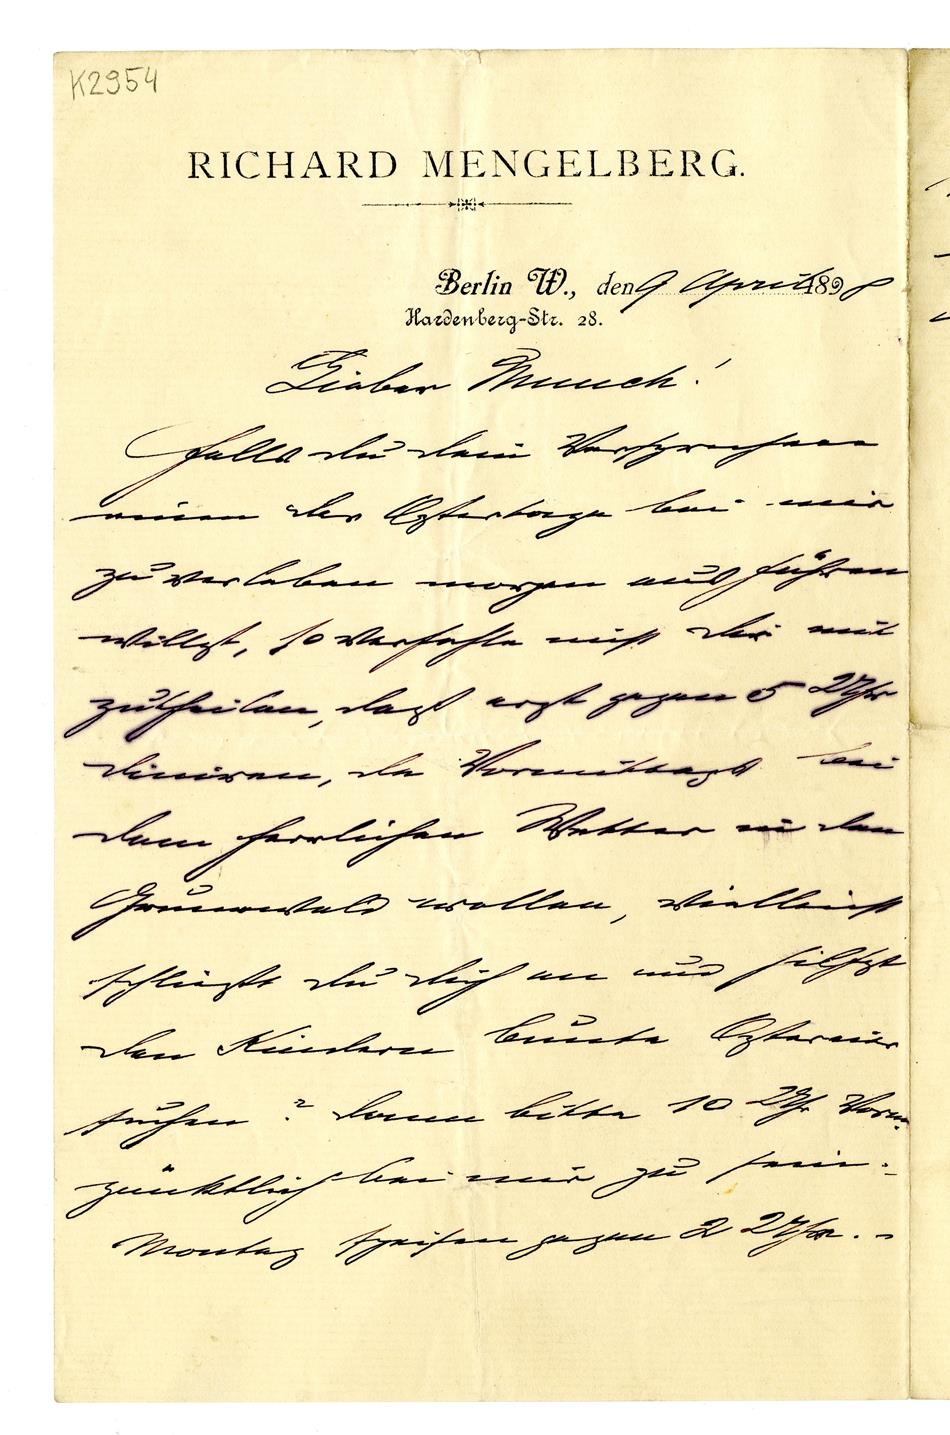 K2954
RICHARD MENGELBERG.
Berlin W., den 9 April 1898
Hardenberg-Str. 28.
Lieber Munch!
falls du dein Versprechen
einen der Ostertage bei mir
zu verleben morgen ausführen
willst, so verfehle nicht dir mit
zutheilen, dass erst gegen 5 Uhr
diniren, da Vormittags bei
dem herrlichen Wetter in den
Grunewald wollen, vielleicht
schliesst du dich an und hilfst
den Kindern bunte Ostereier
suchen? dann bitte 10 Uhr Vorm.
pünktlich bei mir zu sein. -
Montag speisen gegen 2 Uhr. -